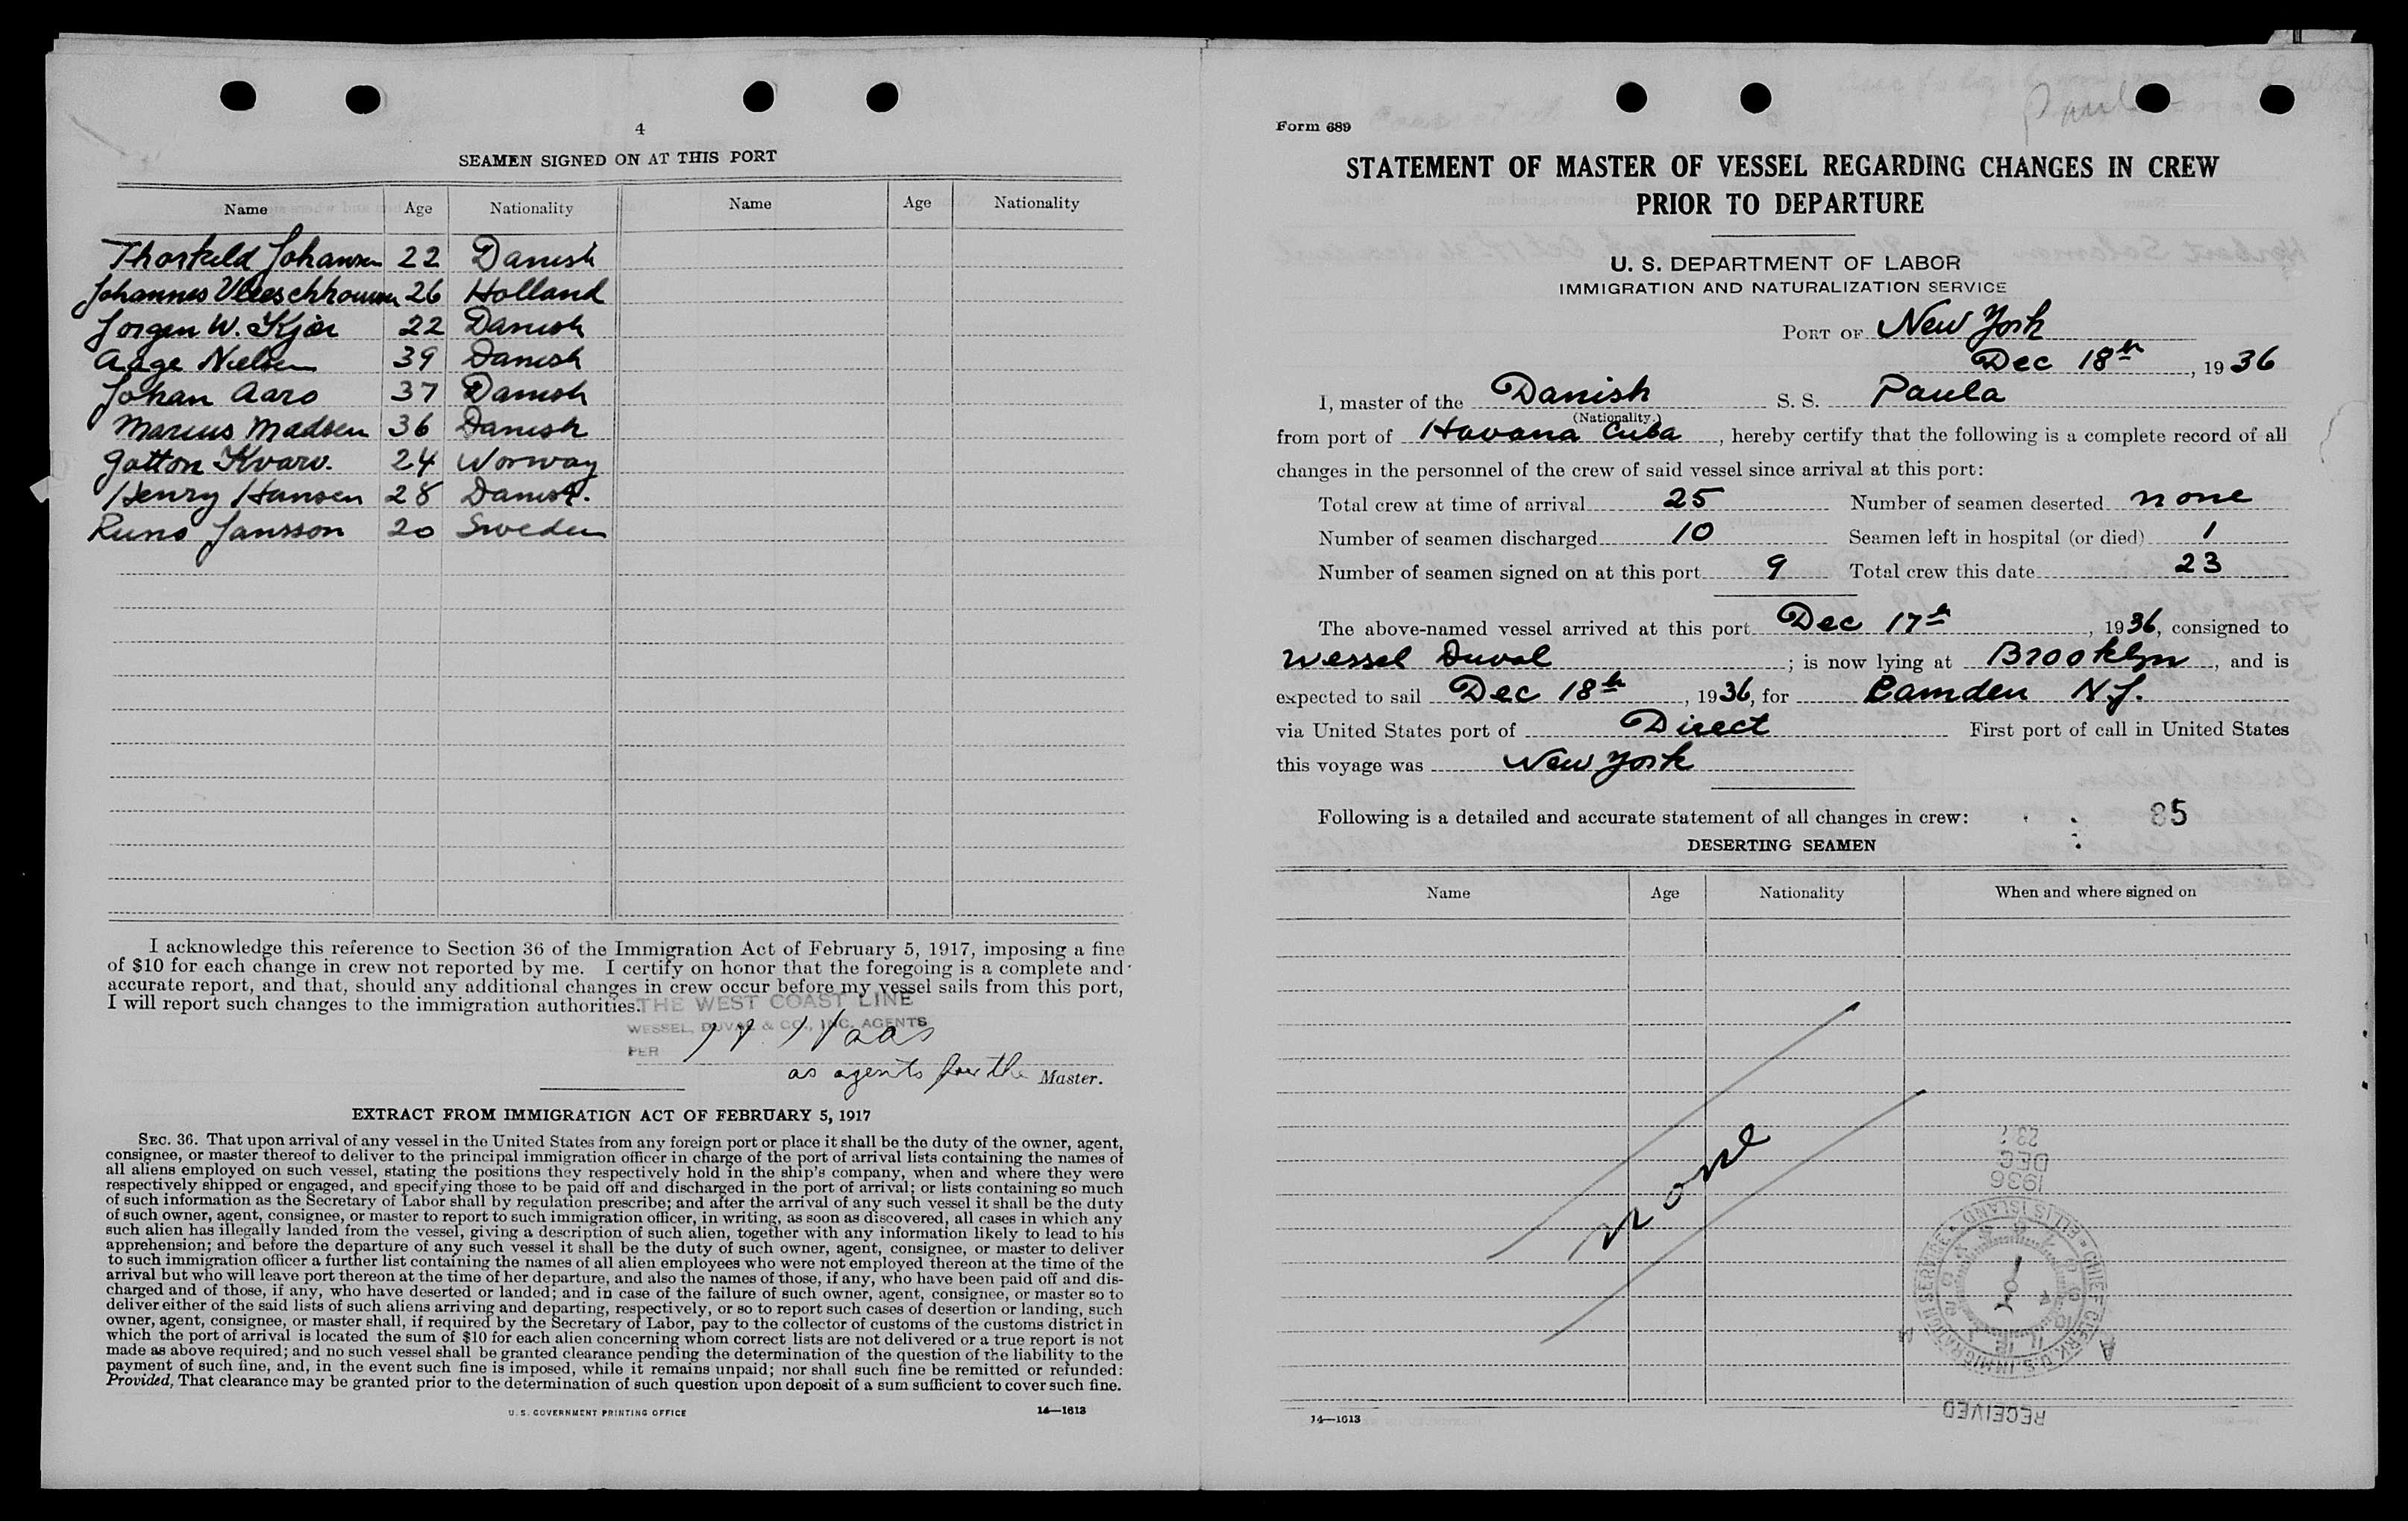 4
SEAMEN SIGNED ON AT THIS PORT
Name Age Nationality Name Age Nationality
Thorkild Johansen 22 Danish
Johannes Vleeschhouwer 26 Holland
Jorgen W. Kjær 22 Danish
Aage Nielsen 39 Danish
Johan Aaro 37 Danish
Marius Madsen 36 Danish
Gotton Kvarv. 24 Norway
Henry Hansen 28 Danish.
Runo Jansson 20 Sweden
I acknowledge this reference to Section 36 of the Immigration Act of February 5, 1917, imposing a fine
of $10 for each change in crew not reported by me. I certify on honor that the foregoing is a complete and
accurate report, and that, should any additional changes in crew occur before my vessel sails from this port,
I will report such changes to the immigration authorities.
THE WEST COAST LINE
WESSEL, DUVAL & CO., INC. AGENTS
PER H. Haas
as agents for the Master.
EXTRACT FROM IMMIGRATION ACT OF FEBRUARY 5, 1917
SEC. 36. That upon arrival of any vessel in the United States from any foreign port or place it shall be the duty of the owner, agent,
consignee, or master thereof to deliver to the principal immigration officer in charge of the port of arrival lists containing the names of
all aliens employed on such vessel, stating the positions they respectively hold in the ship's company, when and where they were
respectively shipped or engaged, and specifying those to be paid off and discharged in the port of arrival; or lists containing so much
of such information as the Secretary of Labor shall by regulation prescribe; and after the arrival of any such vessel it shall be the duty
of such owner, agent, consignee, or master to report to such immigration officer, in writing, as soon as discovered, all cases in which any
such alien has illegally landed from the vessel, giving a description of such alien, together with any information likely to lead to his
apprehension; and before the departure of any such vessel it shall be the duty of such owner, agent, consignee, or master to deliver
to such immigration officer a further list containing the names of all alien employees who were not employed thereon at the time of the
arrival but who will leave port thereon at the time of her departure, and also the names of those, if any, who have been paid off and dis-
charged and of those, if any, who have deserted or landed; and in case of the failure of such owner, agent, consignee, or master so to
deliver either of the said lists of such aliens arriving and departing, respectively, or so to report such cases of desertion or landing, such
owner, agent, consignee, or master shall, if required by the Secretary of Labor, pay to the collector of customs of the customs district in
which the port of arrival is located the sum of $10 for each alien concerning whom correct lists are not delivered or a true report is not
made as above required; and no such vessel shall be granted clearance pending the determination of the question of the liability to the
payment of such fine, and, in the event such fine is imposed, while it remains unpaid; nor shall such fine be remitted or refunded:
Provided, That clearance may be granted prior to the determination of such question upon deposit of a sum sufficient to cover such fine.
U. S. GOVERNMENT PRINTING OFFICE 14—1613
Paula
Form 689
STATEMENT OF MASTER OF VESSEL REGARDING CHANGES IN CREW
PRIOR TO DEPARTURE
U. S. DEPARTMENT OF LABOR
IMMIGRATION AND NATURALIZATION SERVICE
PORT OF New York
Dec 18th, 1936
I, master of the Danish S. S. Paula
(Nationality)
from port of Havana Cuba, hereby certify that the following is a complete record of all
changes in the personnel of the crew of said vessel since arrival at this port:
Total crew at time of arrival 25 Number of seamen deserted none
Number of seamen discharged 10 Seamen left in hospital (or died) 1
Number of seamen signed on at this port 9 Total crew this date 23
The above-named vessel arrived at this port Dec 17th, 1936, consigned to
Wessel Duval; is now lying at Brooklyn, and is
expected to sail Dec 18th, 1936, for Camden N.J.
via United States port of Direct First port of call in United States
this voyage was New York
Following is a detailed and accurate statement of all changes in crew: 85
DESERTING SEAMEN
Name Age Nationality When and where signed on
None
RECEIVED
CHIEF CLERK U.S. IMMIGRATION SERVICE ELLIS ISLAND
1936
DEC
23
14—1613